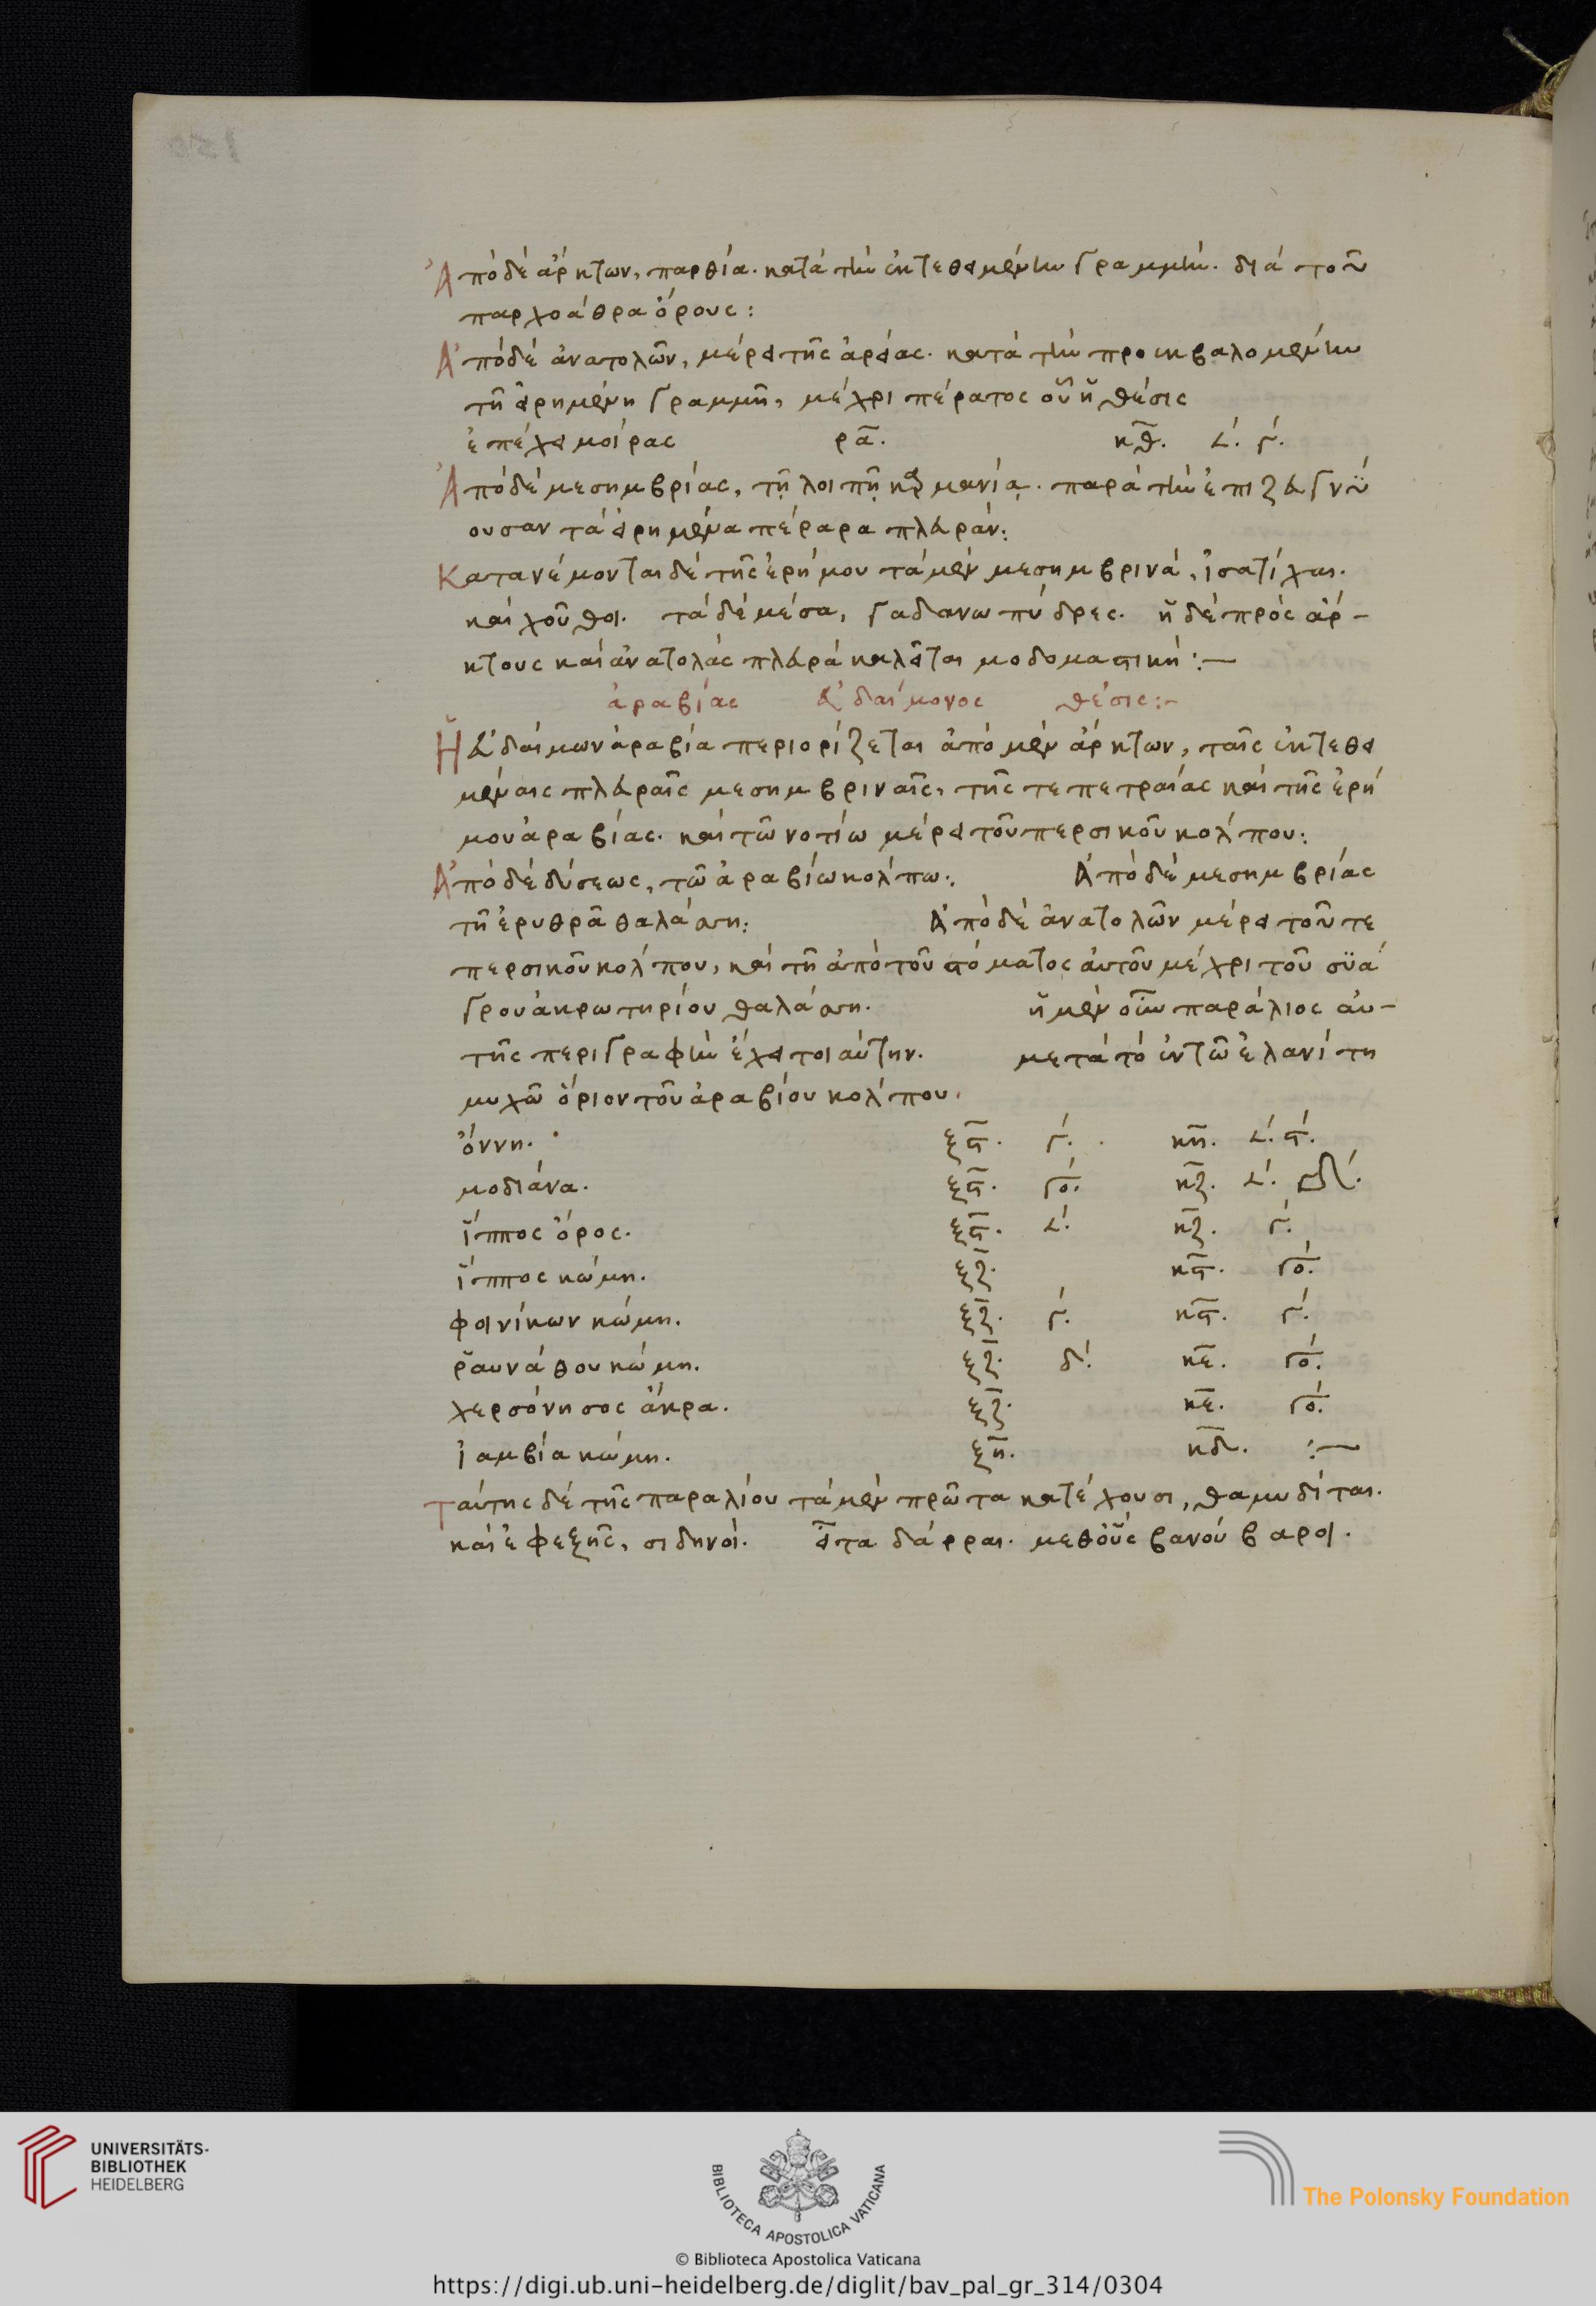 Ἀπὸ δὲ ἄρκτων, παρθία. κατὰ τὴν ἐκτεθειμένην γραμμήν. διὰ τοῦ
παρχοάθρα ὄρους:
Ἀπὸ δὲ ἀνατολῶν, μέρει τῆς ἀρείας. κατὰ τὴν προσκβαλομένην
τῆ εἰρημένη γραμμῆ, μέχρι πέρατος οὗ ἡ θέσις
ἐπέχει μοίρας ρα. κθ. 𐅵. γ.
Ἀπὸ δὲ μεσημβρίας, τῇ λοιπῇ καρμανίᾳ. παρὰ τὴν ἐπιζευγνύ
ουσαν τὰ εἰρημένα πέραρα πλευράν:
Κατανέμονται δὲ τῆς ἐρήμου τὰ μὲν μεσημβρινά, ἰσατίχαι.
καὶ χοῦθοι. τὰ δὲ μέσα, γαδανωπύδρες. ἡ δὲ πρὸς ἄρ-
κτους καὶ ἀνατολὰς πλευρὰ καλεῖται μοδομαστική:—
ἀραβίας εὐδαίμονος θέσις:-
Ἡ εὐδαίμων ἀραβία περιορίζεται ἀπὸ μὲν ἄρκτων, ταῖς ἐκτεθει
μέναις πλευραῖς μεσημβριναῖς, τῆς τε πετραίας καὶ τῆς ἐρή
μου ἀραβίας. καὶ τῶ νοτίω μέρει τοῦ περσικοῦ κόλπου:
Ἀπὸ δὲ δύσεως, τῶ ἀραβίω κόλπω: Ἀπὸ δὲ μεσημβρίας
τῆ ἐρυθρᾶ θαλάσση: Ἀπὸ δὲ ἀνατολῶν μέρει τοῦ τε
περσικοῦ κόλπου, καὶ τῆ ἀπὸ τοῦ στόματος αὐτοῦ μέχρι τοῦ συά
γρου ἀκρωτηρίου θαλάσση. ἡ μὲν οὖν παράλιος αὐ-
τῆς περιγραφὴν ἔχει τοιαύτην. μετὰ τὸ ἐν τῶ ἐλανίτη
μυχῶ ὅριον τοῦ ἀραβίου κόλπου.
ὄννη. ξϛ. γ. κη. 𐅵. ϛ.
μοδιάνα. ξϛ. γο. κζ. 𐅵. δ.
ἵππος ὄρος. ξϛ. 𐅵. κζ. γ.
ἵππος κώμη. ξζ. κϛ. γο.
φοινίκων κώμη. ξζ. γ. κϛ. γ.
ῥαυνάθου κώμη. ξζ. δ. κε. γο.
χερσόνησος ἄκρα. ξζ. κε. γο.
ἰαμβία κώμη. ξη. κδ. :—
Ταύτης δὲ τῆς παραλίου τὰ μὲν πρῶτα κατέχουσι, θαμυδῖται.
καὶ ἐφεξῆς, σιδηνοί. εἶτα δάρραι. μεθ' οὓς βανούβαροι.
UNIVERSITÄTS-
BIBLIOTHEK
HEIDELBERG
BIBLIOTECA APOSTOLICA VATICANA
The Polonsky Foundation
© Biblioteca Apostolica Vaticana
https://digi.ub.uni-heidelberg.de/diglit/bav_pal_gr_314/0304